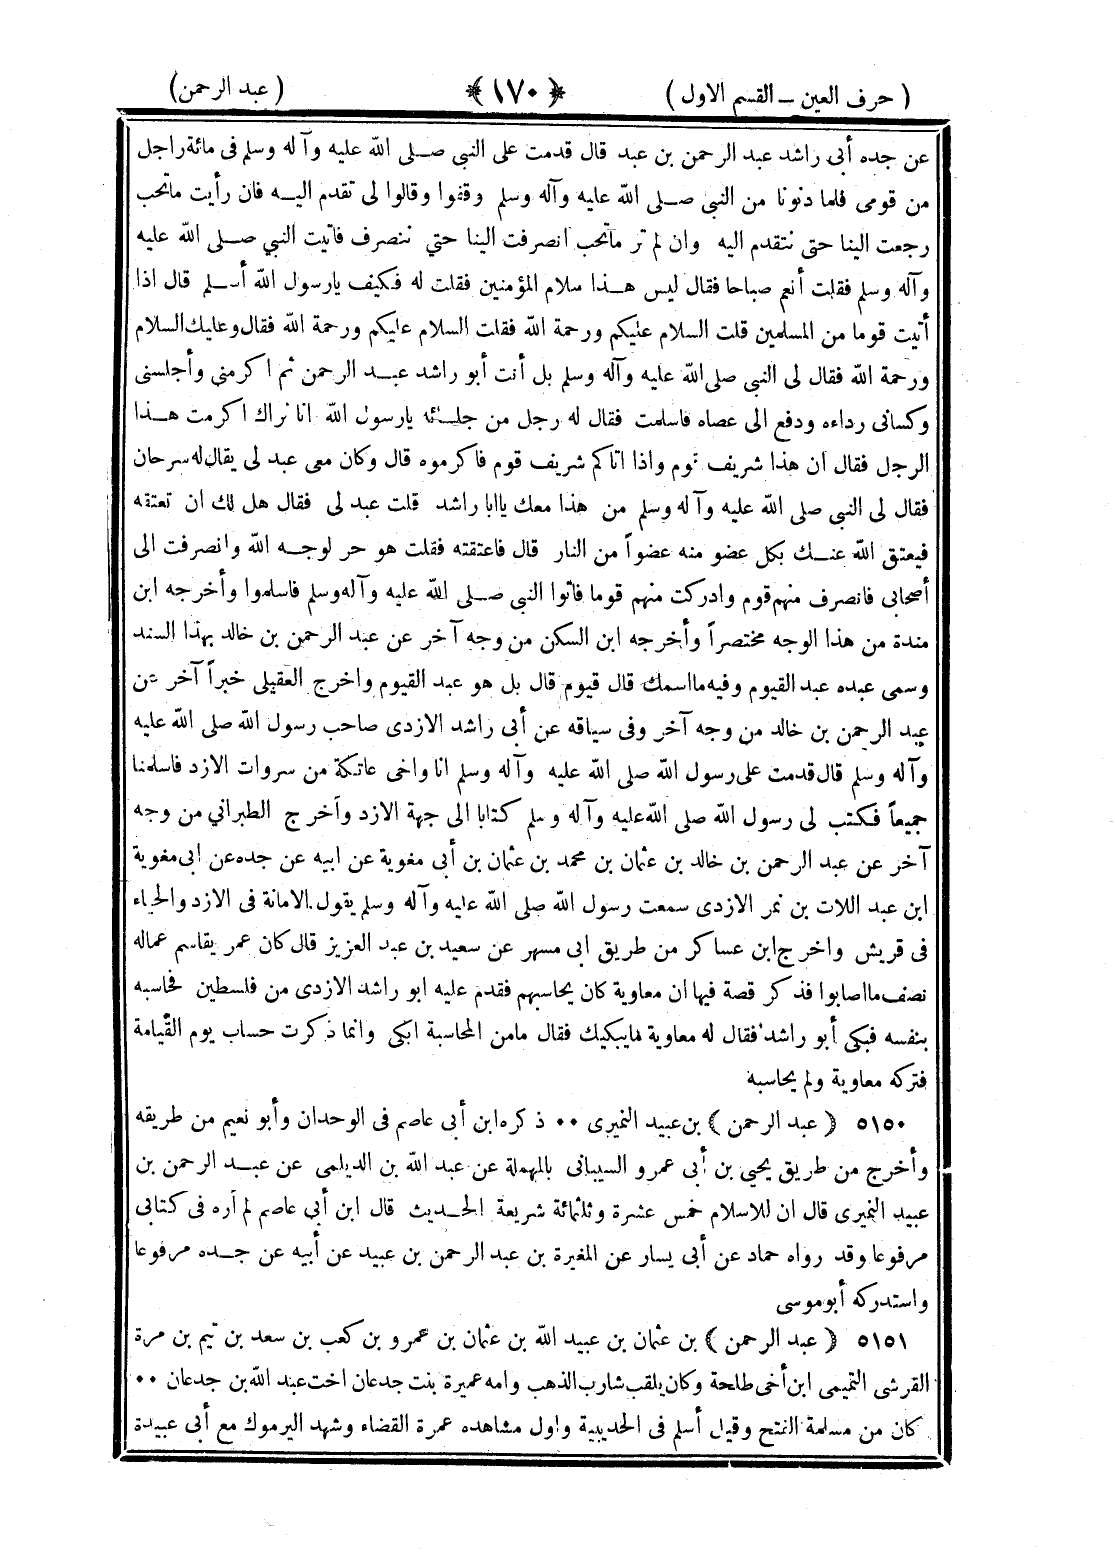 ( حرف العين – القسم الاول ) ﴿ ١٧٠ ﴾ ( عبد الرحمن )
عن جده أبى راشد عبد الرحمن بن عبد قال قدمت على النبى صلى الله عليه وآله وسلم فى مائة راجل
من قومى فلما دنونا من النبى صلى الله عليه وآله وسلم وقفوا وقالوا لى تقدم اليه فان رأيت ماتحب
رجعت الينا حتى نتقدم اليه وان لم تر ماتحب انصرفت الينا حتي ننصرف فاتيت النبي صلى الله عليه
وآله وسلم فقلت أنعم صباحا فقال ليس هذا سلام المؤمنين فقلت له فكيف يارسول الله أسلم قال اذا
أتيت قوما من المسلمين قلت السلام عليكم ورحمة الله فقلت السلام عليكم ورحمة الله فقال وعليك السلام
ورحمة الله فقال لى النبى صلى الله عليه وآله وسلم بل أنت أبو راشد عبد الرحمن ثم اكرمنى وأجلسنى
وكسانى رداءه ودفع الى عصاه فاسلمت فقال له رجل من جلسائه يارسول الله انا نراك اكرمت هذا
الرجل فقال ان هذا شريف قوم واذا اتاكم شريف قوم فاكرموه قال وكان معى عبد لى يقال له سرحان
فقال لى النبى صلى الله عليه وآله وسلم من هذا معك ياابا راشد قلت عبد لى فقال هل لك ان تعتقه
فيعتق الله عنك بكل عضو منه عضواً من النار قال فاعتقته فقلت هو حر لوجه الله وانصرفت الى
أصحابى فانصرف منهم قوم وادركت منهم قوما فاتوا النبى صلى الله عليه وآله وسلم فاسلموا وأخرجه ابن
مندة من هذا الوجه مختصراً وأخرجه ابن السكن من وجه آخر عن عبد الرحمن بن خالد بهذا السند
وسمى عبده عبد القيوم وفيه مااسمك قال قيوم قال بل هو عبد القيوم واخرج العقيلى خبراً آخر عن
عبد الرحمن بن خالد من وجه آخر وفى سياقه عن أبى راشد الازدى صاحب رسول الله صلى الله عليه
وآله وسلم قال قدمت على رسول الله صلى الله عليه وآله وسلم انا واخى عاتكة من سروات الازد فاسلمنا
جميعاً فكتب لى رسول الله صلى الله عليه وآله وسلم كتابا الى جهة الازد وأخرج الطبراني من وجه
آخر عن عبد الرحمن بن خالد بن عثمان بن محمد بن عثمان بن أبى مغوية عن ابيه عن جده عن ابى مغوية
ابن عبد اللات بن نمر الازدى سمعت رسول الله صلى الله عليه وآله وسلم يقول الامانة فى الازد والحياء
فى قريش واخرج ابن عساكر من طريق ابى مسهر عن سعيد بن عبد العزيز قال كان عمر يقاسم عماله
نصف مااصابوا فذكر قصة فيها ان معاوية كان يحاسبهم فقدم عليه ابو راشد الازدى من فلسطين فحاسبه
بنفسه فبكى أبو راشد فقال له معاوية مايبكيك فقال مامن المحاسبة ابكى وانما ذكرت حساب يوم القيامة
فتركه معاوية ولم يحاسبه
٥١٥٠ ( عبد الرحمن ) بن عبيد النميرى ٠٠ ذكره ابن أبى عاصم فى الوحدان وأبو نعيم من طريقه
وأخرج من طريق يحيي بن أبى عمرو السيبانى بالمهملة عن عبد الله بن الديلمى عن عبد الرحمن بن
عبيد النميرى قال ان للاسلام خمس عشرة وثلثمائة شريعة الحديث قال ابن أبى عاصم لم أره فى كتابى
مرفوعا وقد رواه حماد عن أبى يسار عن المغيرة بن عبد الرحمن بن عبيد عن أبيه عن جده مرفوعا
واستدركه أبوموسى
٥١٥١ ( عبد الرحمن ) بن عثمان بن عبيد الله بن عثمان بن عمرو بن كعب بن سعد بن تيم بن مرة
القرشى التميمى ابن أخى طلحة وكان يلقب شارب الذهب وامه عميرة بنت جدعان اخت عبد الله بن جدعان ٠٠
كان من مسلمة الفتح وقيل أسلم فى الحديبية واول مشاهده عمرة القضاء وشهد اليرموك مع أبى عبيدة